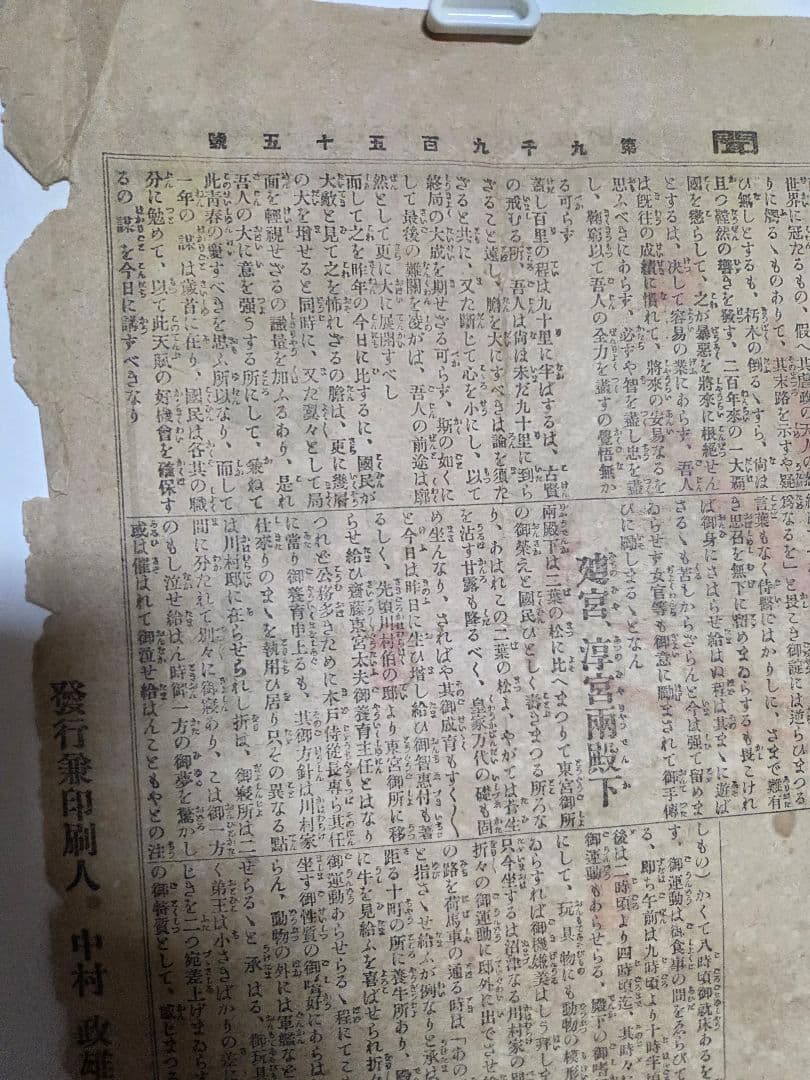 第九千九百五十五號
世界に冠たるもの、假へ其虐政の天人の怒
りに觸るゝものありて、其末路を示すや疑
ひ無しとするも、朽木の倒るゝすら、尙ほ
且つ轟然の響きを發す、二百年來の一大覇
國を懲らして、之が暴惡を將來に根絕せん
とするは、決して容易の業にあらず、吾人
は旣往の成績に慣れて、將來の安易なるを
思ふべきにあらず、必ずや智を盡し忠を盡
し、鞠窮以て吾人の全力を盡すの覺悟無か
る可らず
蓋し百里の程は九十里に半ばするは、古賢
の戒むる所、吾人は尙ほ未だ九十里に到ら
ざること遠し、膽を大にすべきは論を須た
ざると共に、又た斷じて心を小にし、以て
終局の大成を期せざる可らず、斯の如くに
して最後の難關を凌がば、吾人の前途は廓
然として更に大に展開すべし
而して之を昨年の今日に比するに、國民が
大敵と見て之を怖れざるの膽は、更に幾層
の大を增せると同時に、又た翼々として局
面を輕視せざるの識量を加ふるあり、是れ
吾人の大に意を强うする所にして、兼ねて
此靑春の愛すべきを思ふ所以なり、而して
一年の謀は歲首に在り、國民は各其の職
分に勉めて、以て此天賦の好機會を確保す
るの謀を今日に講すべきなり
爲なるを」と畏こき御諚には逆らひまつる
言葉もなく侍醫にはかりしに、さまで難有
き思召を無下に留めまゐらするも畏こけれ
ば御身にさはらせ給はぬ程は其まゝに遊ば
さるゝも苦しからざらんと今は强て留めま
ゐらせず女官等も御意に勵まされて御手傳
ひに勵しまるゝとなん
廸宮、淳宮兩殿下
兩殿下は二葉の松に比へまつりて東宮御所
の御榮えと國民ひとしく壽きまつる所ろな
り、あはれこの二葉の松よ、やがては蒼生
を沾す甘露も降るべく、皇家万代の礎も固
め坐んなり、さればや其御成育もすく〱
と今日は昨日に生ひ增し給ひ御智惠付も著
るしく、先頃川村伯の邸より東宮御所に移
らせ給ひ齋藤東宮太夫御養育主任とはなり
つれど公務多きために木戶侍從長專ら其任
に當り御養育申上るも、其御方針は川村家
仕來りのまゝを執用ひ居り只その異なる點
は川村邸に在らせられし折は、御寢所は二
間に分たれて別々に御寢あり、こは御一方
のもし泣せ給はん時御一方の御夢を驚かし
或は催はれて御泣せ給はんこともやとの注
しもの）かくて八時頃御就床あるを
す、御運動は御食事の間をゑらびて
る、卽ち午前は九時頃より十時半
後は二時頃より四時頃迄、其時々
御運動もあらせらる、殿下の御嗜
にして、玩具物にも動物の模形
ゐらすれば御機嫌美はしう拜しま
只今坐するは沼津なる川村家の
折々の御運動に邸外に出でさせ
の路を荷馬車の通る時は「あの
と指さゝせ給ふが例なりと承は
距る十町の所に養牛所あり、
に牛を見給ふを喜ばせられ折々
御運動あらせらるゝ程にてこ
坐す御性質の御嗜好にあらは
らん、動物の外には軍艦など
せらるゝと承はる、御玩具
く弟王は小さきばかりの差
じきを二つ宛差上げまゐら
の御特質として、感じまつ
發行兼印刷人 中村政雄